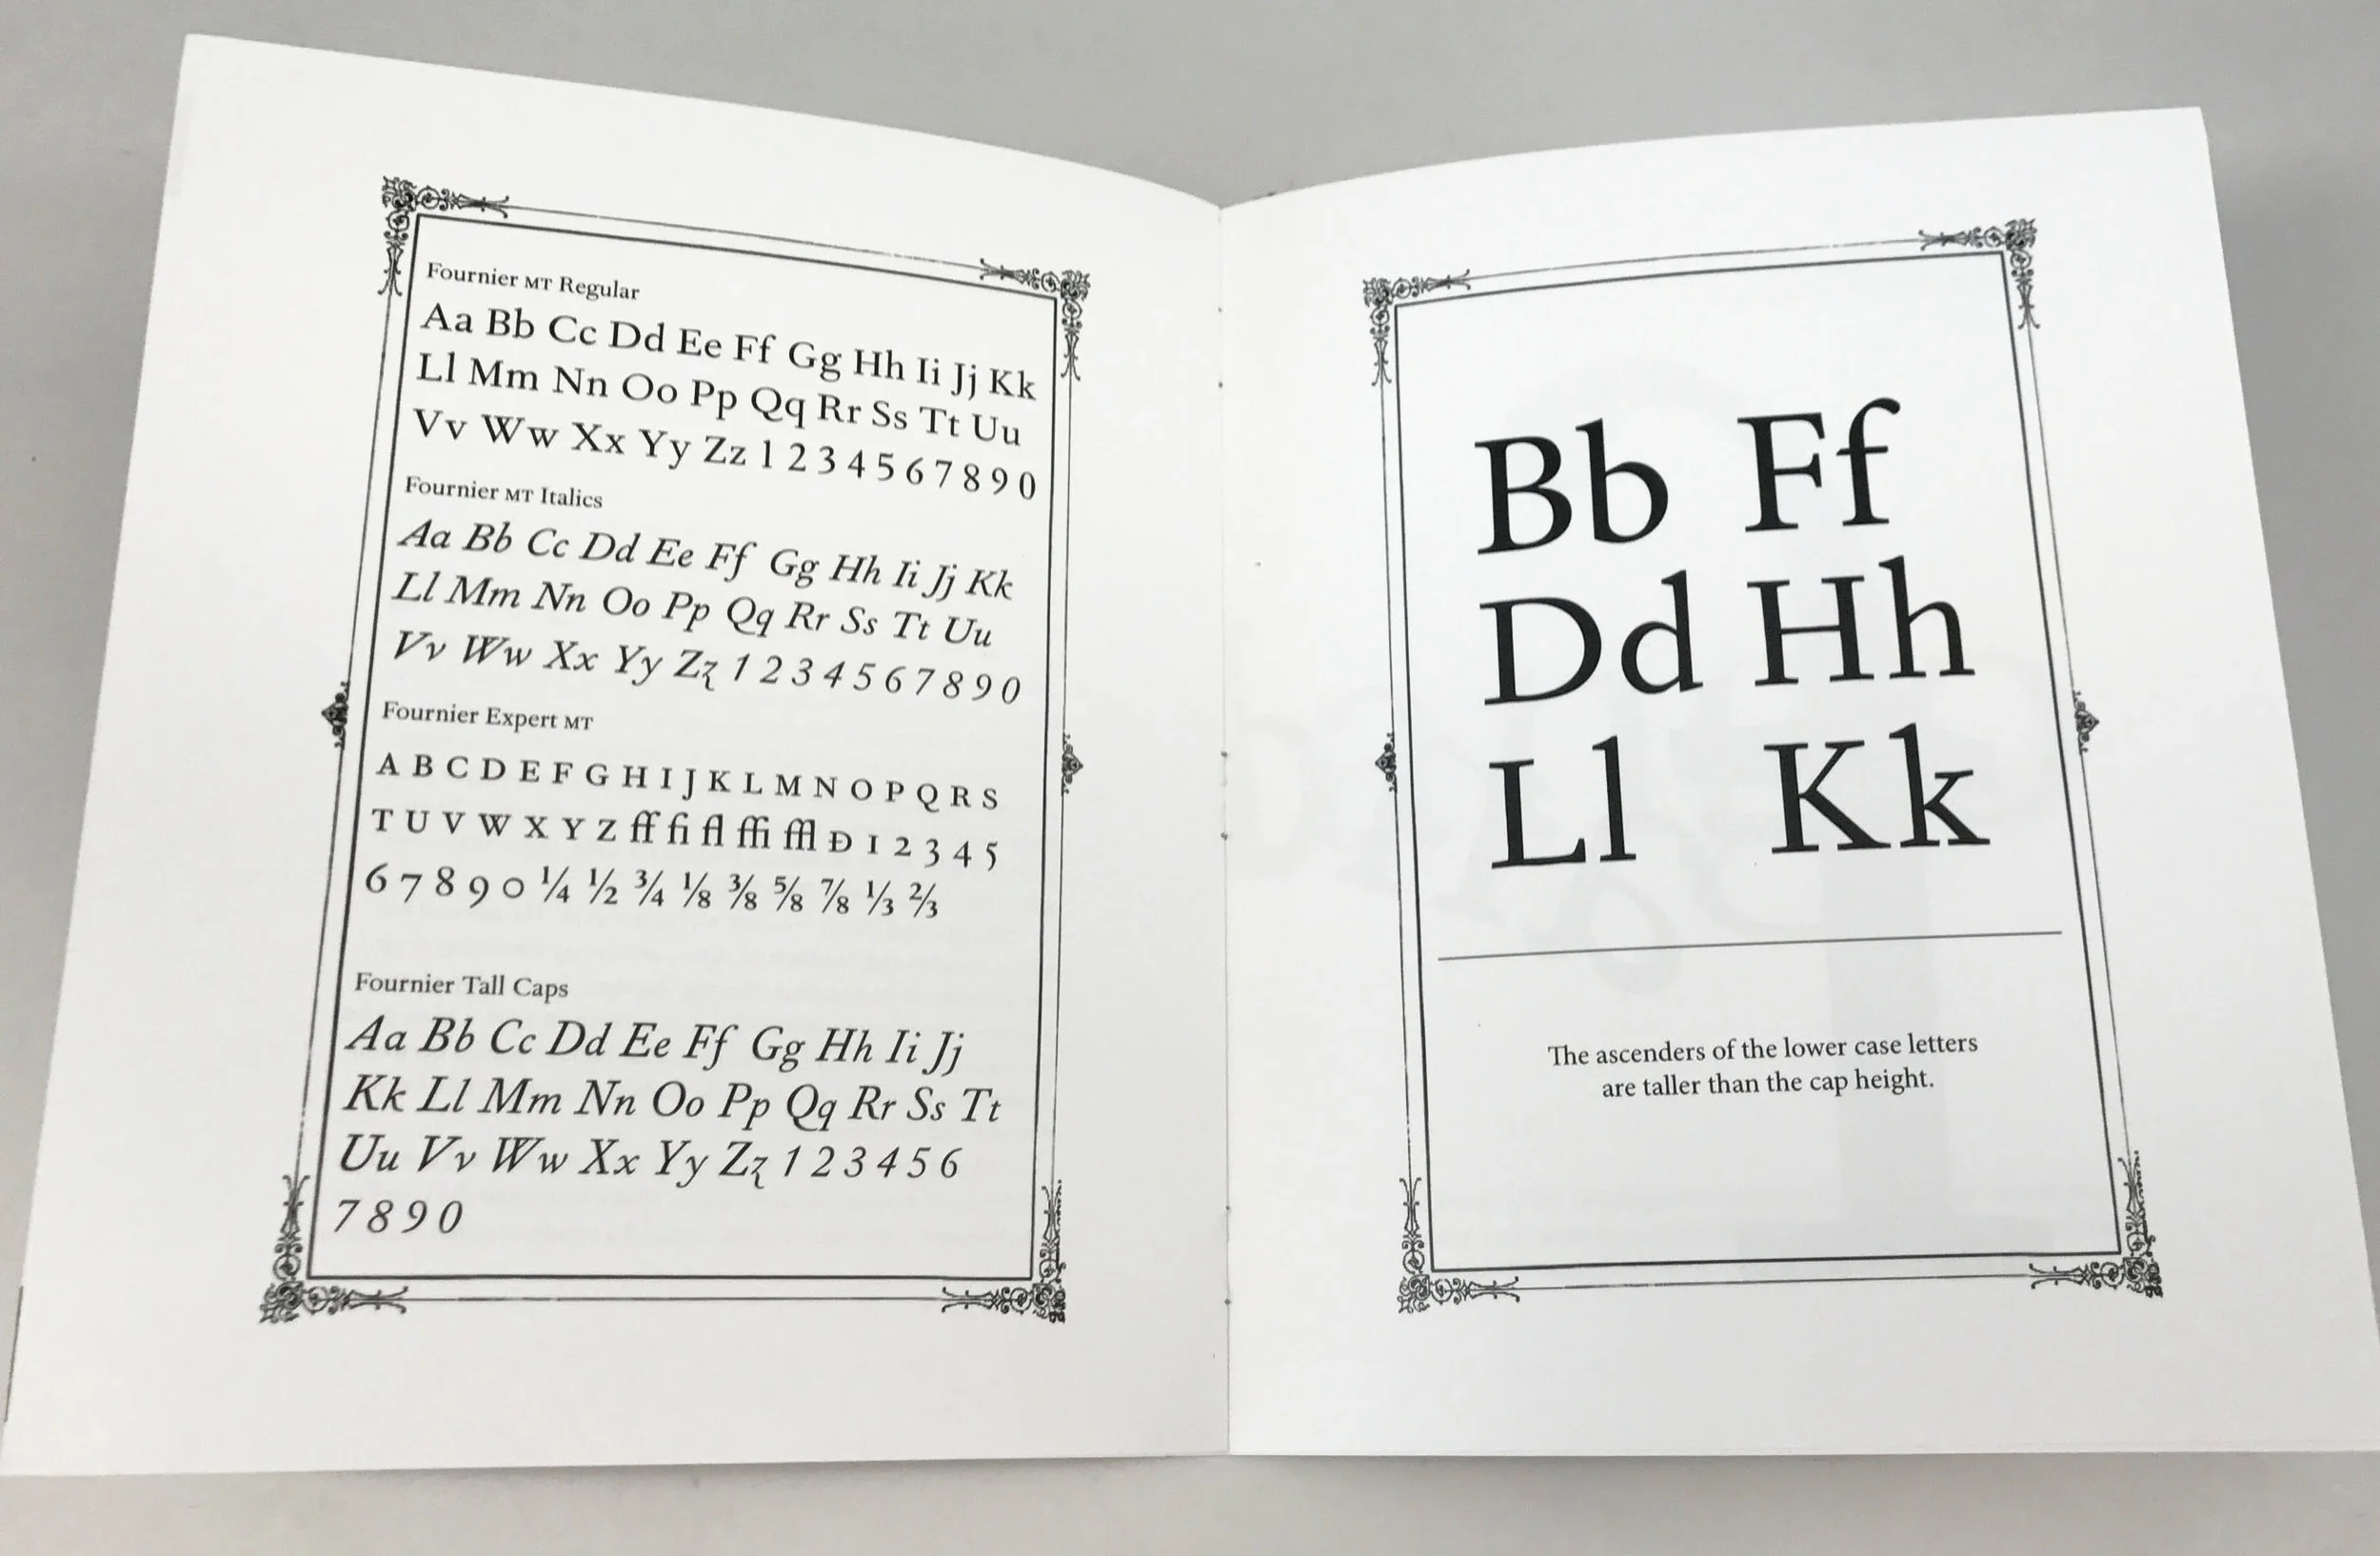 Fournier MT Regular
Aa Bb Cc Dd Ee Ff Gg Hh Ii Jj Kk
Ll Mm Nn Oo Pp Qq Rr Ss Tt Uu
Vv Ww Xx Yy Zz 1 2 3 4 5 6 7 8 9 0
Fournier MT Italics
Aa Bb Cc Dd Ee Ff Gg Hh Ii Jj Kk
Ll Mm Nn Oo Pp Qq Rr Ss Tt Uu
Vv Ww Xx Yy Zz 1 2 3 4 5 6 7 8 9 0
Fournier Expert MT
A B C D E F G H I J K L M N O P Q R S
T U V W X Y Z ff fi fl ffi ffl Ð 1 2 3 4 5
6 7 8 9 0 ¼ ½ ¾ ⅛ ⅜ ⅝ ⅞ ⅓ ⅔
Fournier Tall Caps
Aa Bb Cc Dd Ee Ff Gg Hh Ii Jj
Kk Ll Mm Nn Oo Pp Qq Rr Ss Tt
Uu Vv Ww Xx Yy Zz 1 2 3 4 5 6
7 8 9 0
Bb Ff
Dd Hh
Ll Kk
The ascenders of the lower case letters
are taller than the cap height.